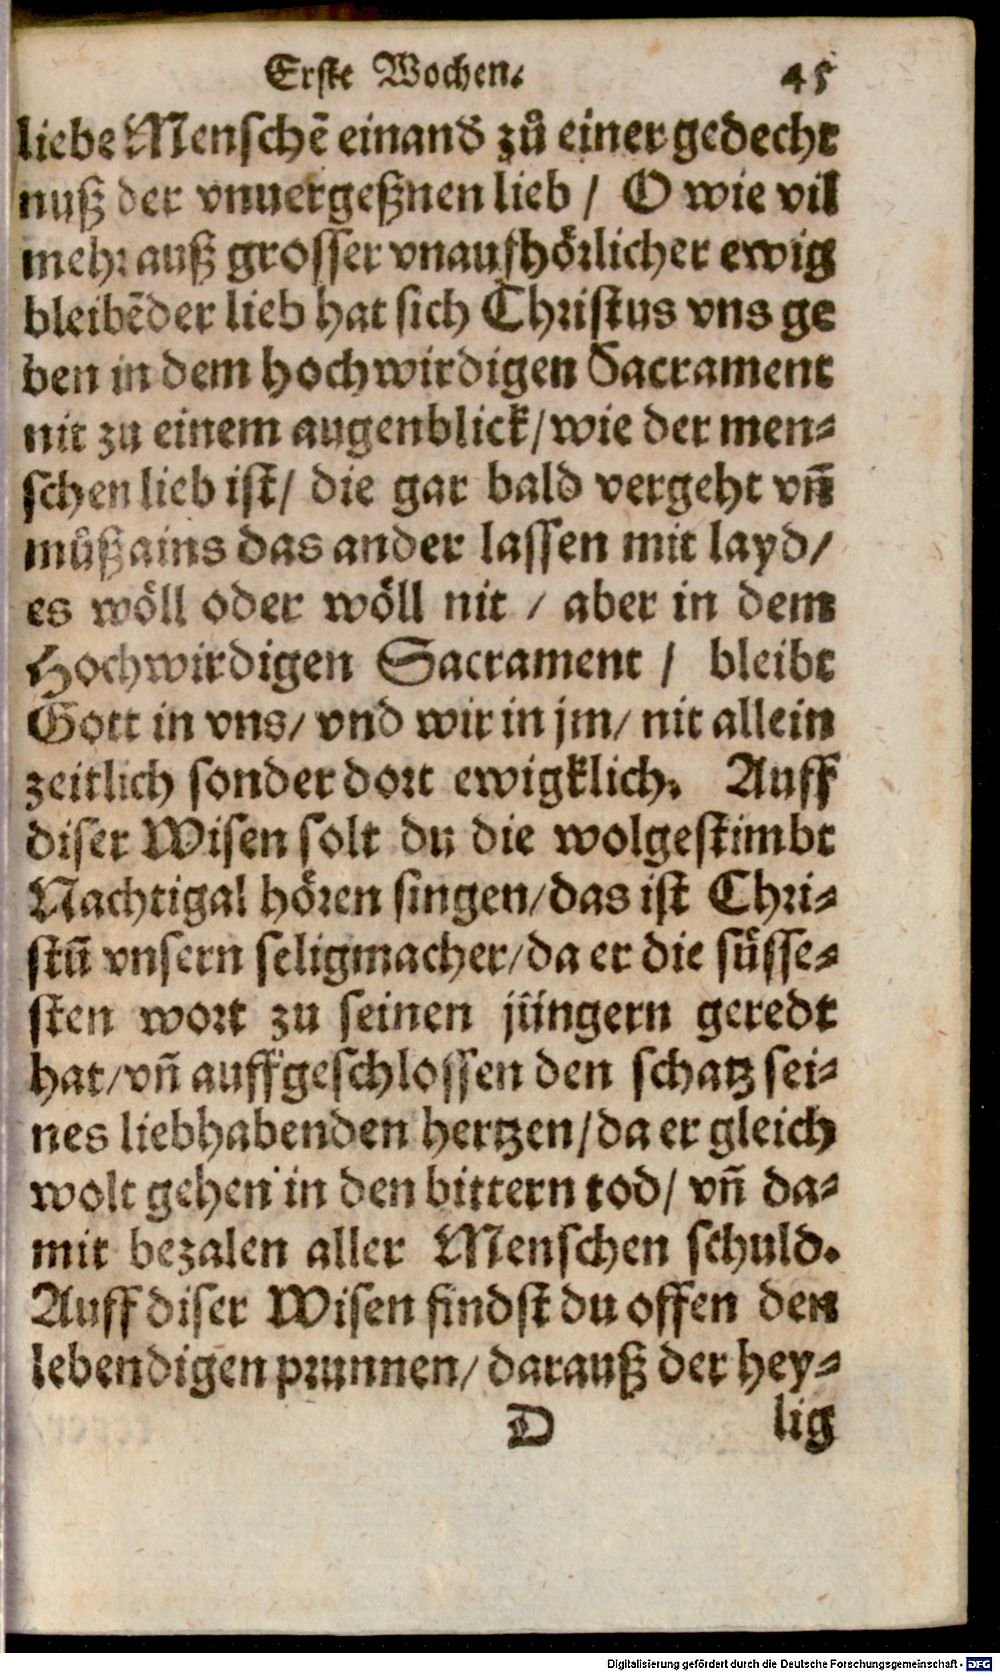 Erste Wochen. 45
liebe Menschẽ einand zů einer gedecht
nuß der vnuergeßnen lieb / O wie vil
mehr auß grosser vnaufhörlicher ewig
bleibẽder lieb hat sich Christus vns ge
ben in dem hochwirdigen Sacrament
nit zu einem augenblick/wie der men-
schen lieb ist/ die gar bald vergeht vñ
můß ains das ander lassen mit layd/
es wöll oder wöll nit / aber in dem
Hochwirdigen Sacrament / bleibt
Gott in vns/ vnd wir in jm/ nit allein
zeitlich sonder dort ewigklich. Auff
diser Wisen solt du die wolgestimbt
Nachtigal hören singen/das ist Chri-
stũ vnsern seligmacher/da er die süsse-
sten wort zu seinen jüngern geredt
hat/vñ auffgeschlossen den schatz sei-
nes liebhabenden hertzen/da er gleich
wolt gehen in den bittern tod/ vñ da-
mit bezalen aller Menschen schuld.
Auff diser Wisen findst du offen den
lebendigen prunnen/darauß der hey-
D lig
Digitalisierung gefördert durch die Deutsche Forschungsgemeinschaft - DFG